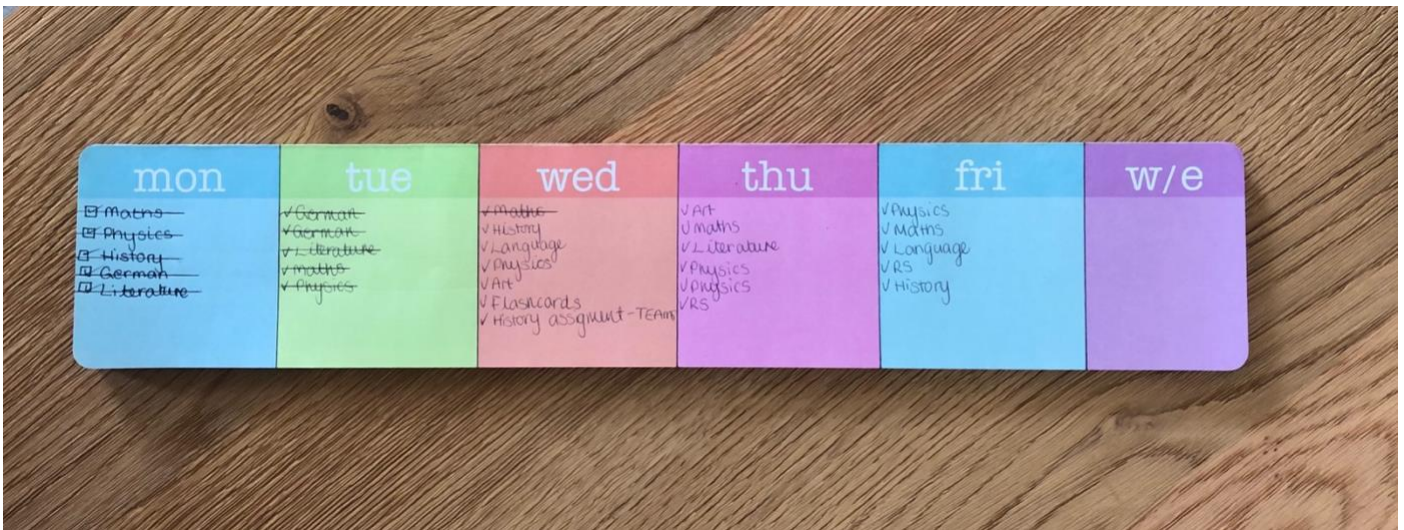 mon
Maths
Physics
History
German
Literature
tue
German
German
Literature
maths
Physics
wed
Maths
History
Language
Physics
Art
Flashcards
History assigment - TEAMS
thu
Art
maths
Literature
Physics
Physics
RS
fri
Physics
Maths
Language
RS
History
w/e